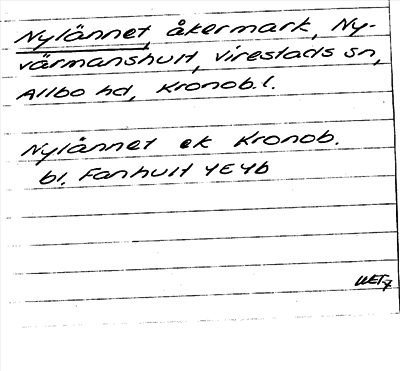 Nylännet, åkermark, Ny-
värmanshult, Virestads sn,
Allbo hd, Kronob. l.
Nylännet ek Kronob.
bl. Fanhult 4E4b